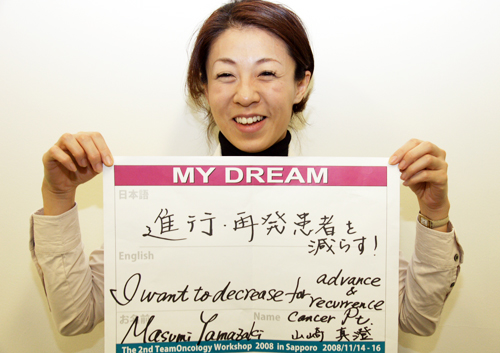 MY DREAM
日本語
進行・再発患者を
減らす!
English
I want to decrease for advance
& recurrence
cancer Pt.
お名前 Name
Masumi Yamazaki 山崎 真澄
The 2nd TeamOncology Workshop 2008 in Sapporo 2008/11/14 - 16